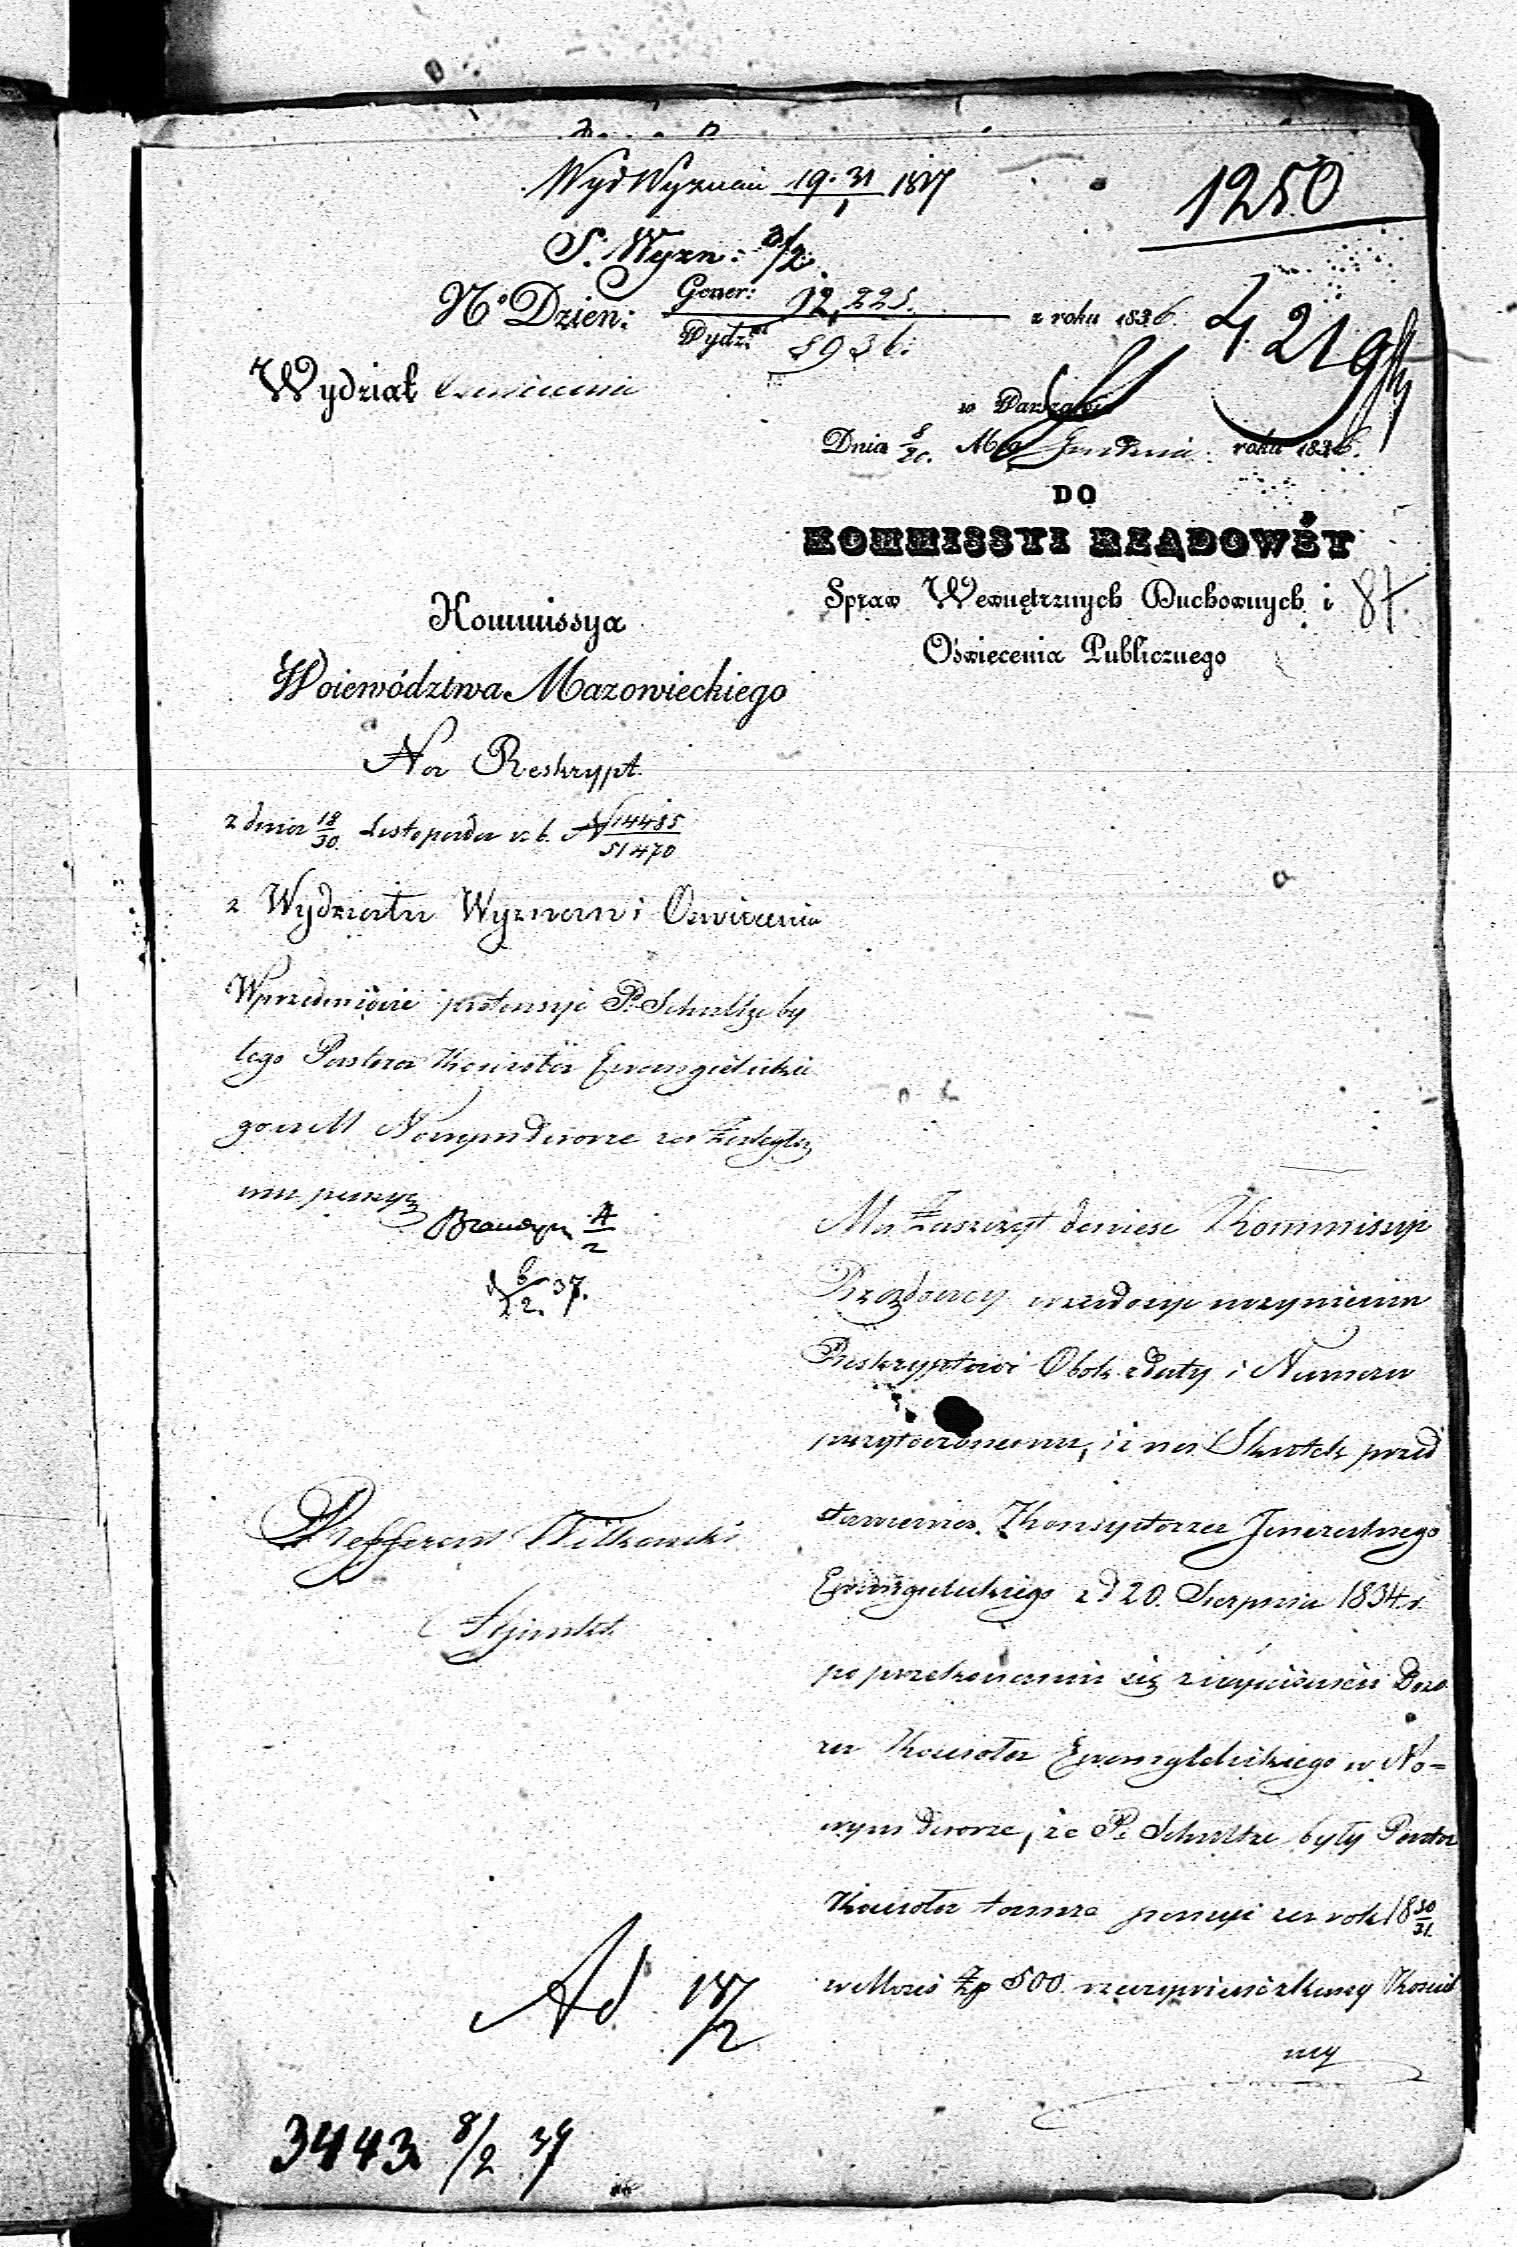 Wyd Wyznań 19. 31/1 1837
1250
S. Wyzn: 3/2
No Dzien: Gener: 92,225. z roku 1836.
Wydz: 5936.
4219
Wydział Oswiecenia
w Warszawie
Dnia 8/20. Mca Grudnia roku 1836.
DO
KOMMISSYI RZĄDOWÉY
Spraw Wewnętrznych Duchownych i
Oświecenia Publicznego
87.
Kommissya
Woiewództwa Mazowieckiego
Na Reskrypt
z dnia 18/30. Listopada r. b. N 14485/51470
z Wydziału Wyznań i Oswiecenia
W przedmiocie pretensyi P. Schultze by
łego Pastora Kościoła Ewangielickie
go w M Nowymdworze za zaległą
mu pensyą
4/2
d 6/2. 37.
Refferent Witkowski
Adjunkt
Ma Zaszczyt donieść Kommissyi
Rządowey w zadosyć uczynieniu
Reskryptowi Obok z daty i Numeru
przytoczonemu, iż na Skutek przed
stawienia Konsystorza Jeneralnego
Ewangielickiego z d 20. Sierpnia 1834 r.
po przekonaniu się z wyjaśnień Dozo
ru Kościoła Ewangielickiego w No=
wym dworze, że P. Schultze były Pastor
Kościoła tamże pensyi za rok 18 30/31.
w ilości Zp 500 z Kassy
ney
Ad 187/2
3443 8/2 37